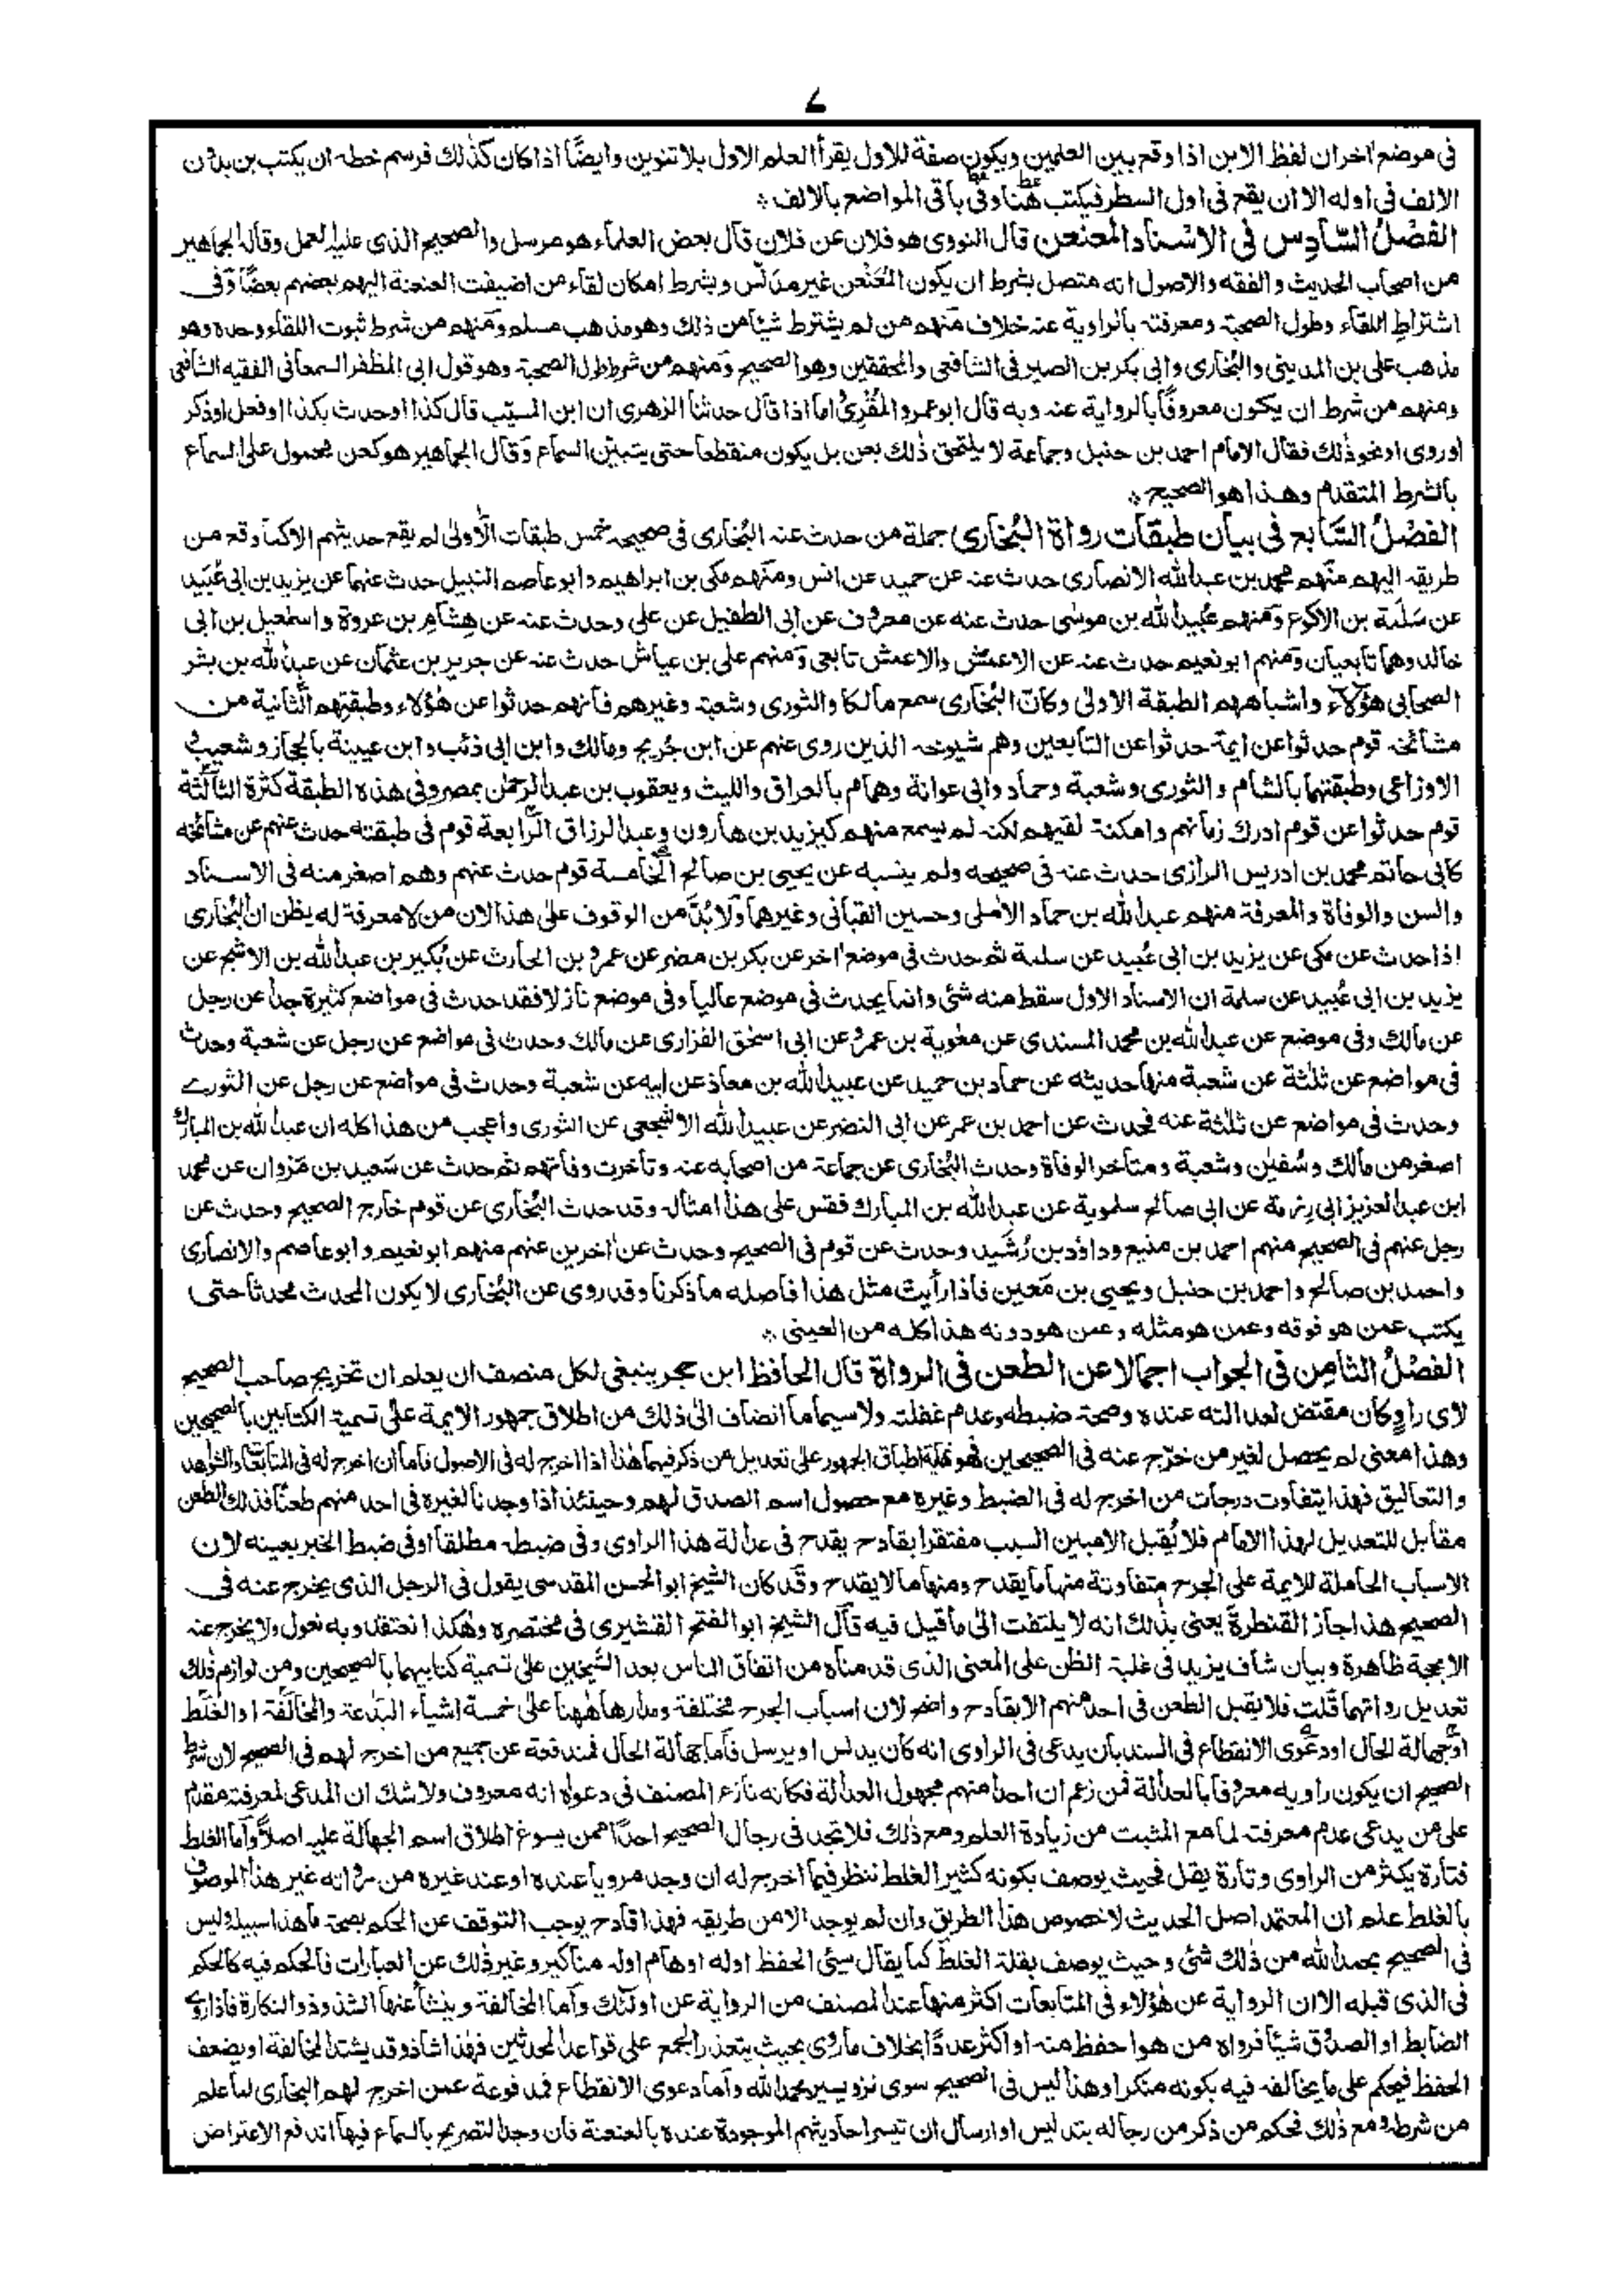 ٧
فى موضع اخران لفظ الابن اذا وقع بين العلمين ويكون صفة للاول يقرأ العلم الاول بلا تنوين وايضًا اذا كان كذٰلك فرسم خطه ان يكتب بن بدون
الالف فى اوله الا ان يقع فى اول السطر فيكتب هٰنا وفى باقى المواضع بالالف ؞
الفَصْلُ السَّادِس فى الاسْناد المعنعن قال النووى هو فلان عن فلان قال بعض العلماء هو مرسل والصحيح الذى عليه العمل وقاله الجماهير
من اصحاب الحديث والفقه والاصول انه متصل بشرط ان يكون المُعَنْعِن غير مدلّس وبشرط امكان لقاء من اضيفت العنعنة اليهم بعضهم بعضًا وَفى
اشتراط اللقاء وطول الصحبة ومعرفته بالرواية عنه خلاف مَنهم من لم يشترط شيئا من ذلك وهو مذهب مسلم ومَنهم من شرط ثبوت اللقاء وحده وهو
مذهب على بن المدينى والبُخارى وابى بكر بن الصيرفى الشافعى والمحققين وهو الصحيح ومَنهم من شرط طول الصحبة وهو قول ابى المظفر السمعانى الفقيه الشافعى
ومنهم من شرط ان يكون معروفًا بالرواية عنه وبه قال ابو عمرو المُقْرِئُ اما اذا قال حدثنا الزهرى ان ابن المسيّب قال كذا او حدث بكذا او فعل او ذكر
او روى او نحو ذٰلك فقال الامام احمد بن حنبل وجماعة لا يلتحق ذٰلك بعن بل يكون منقطعا حتى يتبيّن السماع وَقال الجماهير هو كعن محمول على السماع
بالشرط المتقدم وهذا هو الصحيح ؞
الفَصْلُ السَّابع فى بيان طبقات رواة البُخارى جملة من حدث عنه البُخارى فى صحيحه خمس طبقات الْاُولىٰ لم يقع حديثهم الا كما وقع من
طريقه اليهم مَنهم محمد بن عبد الله الانصارى حدث عنه عن حميد عن انس ومنَهم مكى بن ابراهيم وابو عاصم النبيل حدث عنهما عن يزيد بن ابى عُبَيد
عن سَلَمَة بن الاكوع ومَنهم عُبيد الله بن موسٰى حدث عنه عن معروف عن ابى الطفيل عن على وحدث عنه عن هِشام بن عروة واسمٰعيل بن ابى
خالد وهما تابعيان ومَنهم ابو نعيم حدث عنه عن الاعمش والاعمش تابعى ومَنهم على بن عياش حدث عنه عن جرير بن عثمان عن عبد الله بن بشر
الصحابى هؤلاء واشباههم الطبقة الاولىٰ وكان البُخارى سمع مالكا والثورى وشعبة وغيرهم فانهم حدثوا عن هٰؤلاء وطبقتهم الثَّانية من
مشائخه قوم حدثوا عن ايمة حدثوا عن التابعين وهم شيوخه الذين روى عنهم عن ابن جُريج ومالك وابن ابى ذئب وابن عيينة بالحجاز وشعيب و
الاوزاعى وطبقتهما بالشام والثورى وشعبة وحماد وابى عوانة وهمام بالعراق والليث ويعقوب بن عبد الرحمٰن بمصر وفى هذه الطبقة كثرة الثَّالثة
قوم حدثوا عن قوم ادرك زمانهم وامكنه لقيهم لكنه لم يسمع منهم كيزيد بن هارون وعبد الرزاق الرَّابعة قوم فى طبقته حدث عنهم عن مشائخه
كابى حاتم محمد بن ادريس الرازى حدث عنه فى صحيحه ولم ينسبه عن يحيى بن صالح الخَّامسة قوم حدث عنهم وهم اصغر منه فى الاسناد
والسن والوفاة والمعرفة منهم عبد الله بن حماد الاٰملى وحسين القبانى وغيرهما وَلا بُدَّ من الوقوف علىٰ هذا لان من لا معرفة له يظن ان البُخارى
اذا حدث عن مكى عن يزيد بن ابى عُبيد عن سلمة ثم حدث فى موضع اٰخر عن بكر بن مضر عن عمرو بن الحارث عن بُكير بن عبد الله بن الاشج عن
يزيد بن ابى عُبيد عن سلمة ان الاسناد الاول سقط منه شئ وانما يحدث فى موضع عاليا وفى موضع نازلا فقد حدث فى مواضع كثيرة جدا عن رجل
عن مالك وفى موضع عن عبد الله بن محمد المسندى عن معٰوية بن عمرو عن ابى اسحٰق الفزارى عن مالك وحدث فى مواضع عن رجل عن شعبة وحدث
فى مواضع عن ثلٰثة عن شعبة منها حديثه عن حماد بن حميد عن عبيد الله بن معاذ عن ابيه عن شعبة وحدث فى مواضع عن رجل عن الثورے
وحدث فى مواضع عن ثلٰثة عنه فحدث عن احمد بن عمر عن ابى النضر عن عبيد الله الاشجعى عن الثورى واعجب من هذا كله ان عبد الله بن المبارك
اصغر من مالك وسُفيٰن وشعبة ومتاخر الوفاة وحدث البُخارى عن جماعة من اصحابه عنه وتاخرت وفاتهم ثم حدث عن سَعيد بن مَرْوان عن محمد
ابن عبد العزيز ابى رزمة عن ابى صالح سلموية عن عبد الله بن المبارك فقس على هذا امثاله وقد حدث البُخارى عن قوم خارج الصحيح وحدث عن
رجل عنهم فى الصحيح منهم احمد بن منيع وداؤد بن رُشَيد وحدث عن قوم فى الصحيح وحدث عن اٰخرين عنهم منهم ابو نعيم وابو عاصم والانصارى
واحمد بن صالح واحمد بن حنبل ويحيى بن مَعين فاذا رأيت مثل هذا فاصله ما ذكرنا وقد روى عن البُخارى لا يكون المحدث محدثا حتى
يكتب عمن هو فوقه وعمن هو مثله وعمن هو دونه هذا كله من العينى ؞
الفَصْلُ الثامِن فى الجواب اجمالا عن الطعن فى الرواة قال الحافظ ابن حجر ينبغى لكل منصف ان يعلم ان تخريج صاحب الصحيح
لاى راوٍ كان مقتض لعدالته عنده وصحة ضبطه وعدم غفلته ولا سيما ما انضاف الىٰ ذلك من اطلاق جمهور الايمة علىٰ تسمية الكتابين بالصحيحين
وهذا معنى لم يحصل لغير من خرّج عنه فى الصحيحين فهو بمثابة اطباق الجمهور على تعديل من ذكر فيهما هٰذا اذا اخرج له فى الاصول فاما ان اخرج له فى المتابعات والشواهد
والتعاليق فهذا يتفاوت درجات من اخرج له فى الضبط وغيره مع حصول اسم الصدق لهم وحينئذ اذا وجدنا لغيره فى احد منهم طعنًا فذلك الطعن
مقابل للتعديل لهذا الامام فلا يُقبل الا مبين السبب مفتقرا بقادح يقدح فى عدالة هذا الراوى وفى ضبطه مطلقا او فى ضبط الخبر بعينه لان
الاسباب الحاملة للايمة على الجرح متفاوتة منها ما يقدح ومنها ما لا يقدح وقَد كان الشيخ ابو الحسن المقدسى يقول فى الرجل الذى يخرج عنه فى
الصحيح هذا جاز القنطرة يعنى بذٰلك انه لا يلتفت الىٰ ما قيل فيه قال الشيخ ابو الفتح القشيرى فى مختصره وهٰكذا نعتقد وبه نقول ولا يخرج عنه
الا بحجة ظاهرة وبيان شاف يزيد فى غلبة الظن على المعنى الذى قدمناه من اتفاق الناس بعد الشَّيخين علىٰ تسمية كتابيهما بالصحيحين ومن لوازم ذٰلك
تعديل رواتهما قُلت فلا يقبل الطعن فى احد منهم الا بقادح واضح لان اسباب الجرح مختلفة ومدارها هٰهنا علىٰ خمسة اشياء البَدعة والمخالَفة او الغَلَط
او جَهالة الحال او دعوَى الانقطاع فى السند بان يدعى فى الراوى انه كان يدلس او يرسل فاَما جهالة الحال فمندفعة عن جميع من اخرج لهم فى الصحيح لان شرط
الصحيح ان يكون راويه معروفا بالعدالة فمن زعم ان احدا منهم مجهول العدالة فكانه نازع المصنف فى دعواه انه معروف ولا شك ان المدعى لمعرفته مقدم
على من يدعى عدم معرفته لما مع المثبت من زيادة العلم ومع ذٰلك فلا تجد فى رجال الصحيح احدًا ممن يسوغ اطلاق اسم الجهالة عليه اصلًا وَاَما الغلط
فتارة يكثر من الراوى وتارة يقل فحيث يوصف بكونه كثير الغلط ننظر فيما اخرج له ان وجد مرويا عنده او عند غيره من رواته غير هذا الموصوف
بالغلط علم ان المعتمد اصل الحديث لا خصوص هذا الطريق وان لم يوجد الا من طريقه فهذا قادح يوجب التوقف عن الحكم بصحة ما هذا سبيله وليس
فى الصحيح بحمد الله من ذٰلك شئ وحيث يوصف بقلة الغلط كما يقال سئ الحفظ اوله اوهام اوله مناكير وغير ذٰلك عن العبارات فالحكم فيه كالحكم
فى الذى قبله الا ان الرواية عن هٰؤلاء فى المتابعات اكثر منها عند المصنف من الرواية عن اولٰئك وَاما المخالفة وينشأ عنها الشذوذ والنكارة فاذا روى
الضابط او الصدوق شيئا فرواه من هو احفظ منه او اكثر عددًا بخلاف ما روى بحيث يتعذر الجمع على قواعد المحدثين فهٰذا شاذ وقد يشتد المخالفة او يضعف
الحفظ فيحكم على ما يخالف فيه بكونه منكرا وهذا ليس فى الصحيح سوى نزر يسير بحمد الله واَما دعوى الانقطاع فمدفوعة عمن اخرج لهم البخارى لما علم
من شرطه ومع ذٰلك فحكم من ذكر من رجاله بتدليس او ارسال ان تيسر احاديثهم الموجودة عنده بالعنعنة فان وجد التصريح بالسماع فيها اندفع الاعتراض